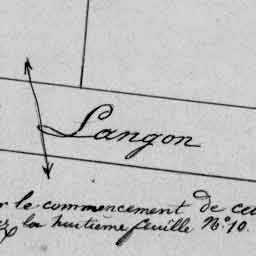 Langon
r le commencement de cet
la huitième feuille N.º 10.